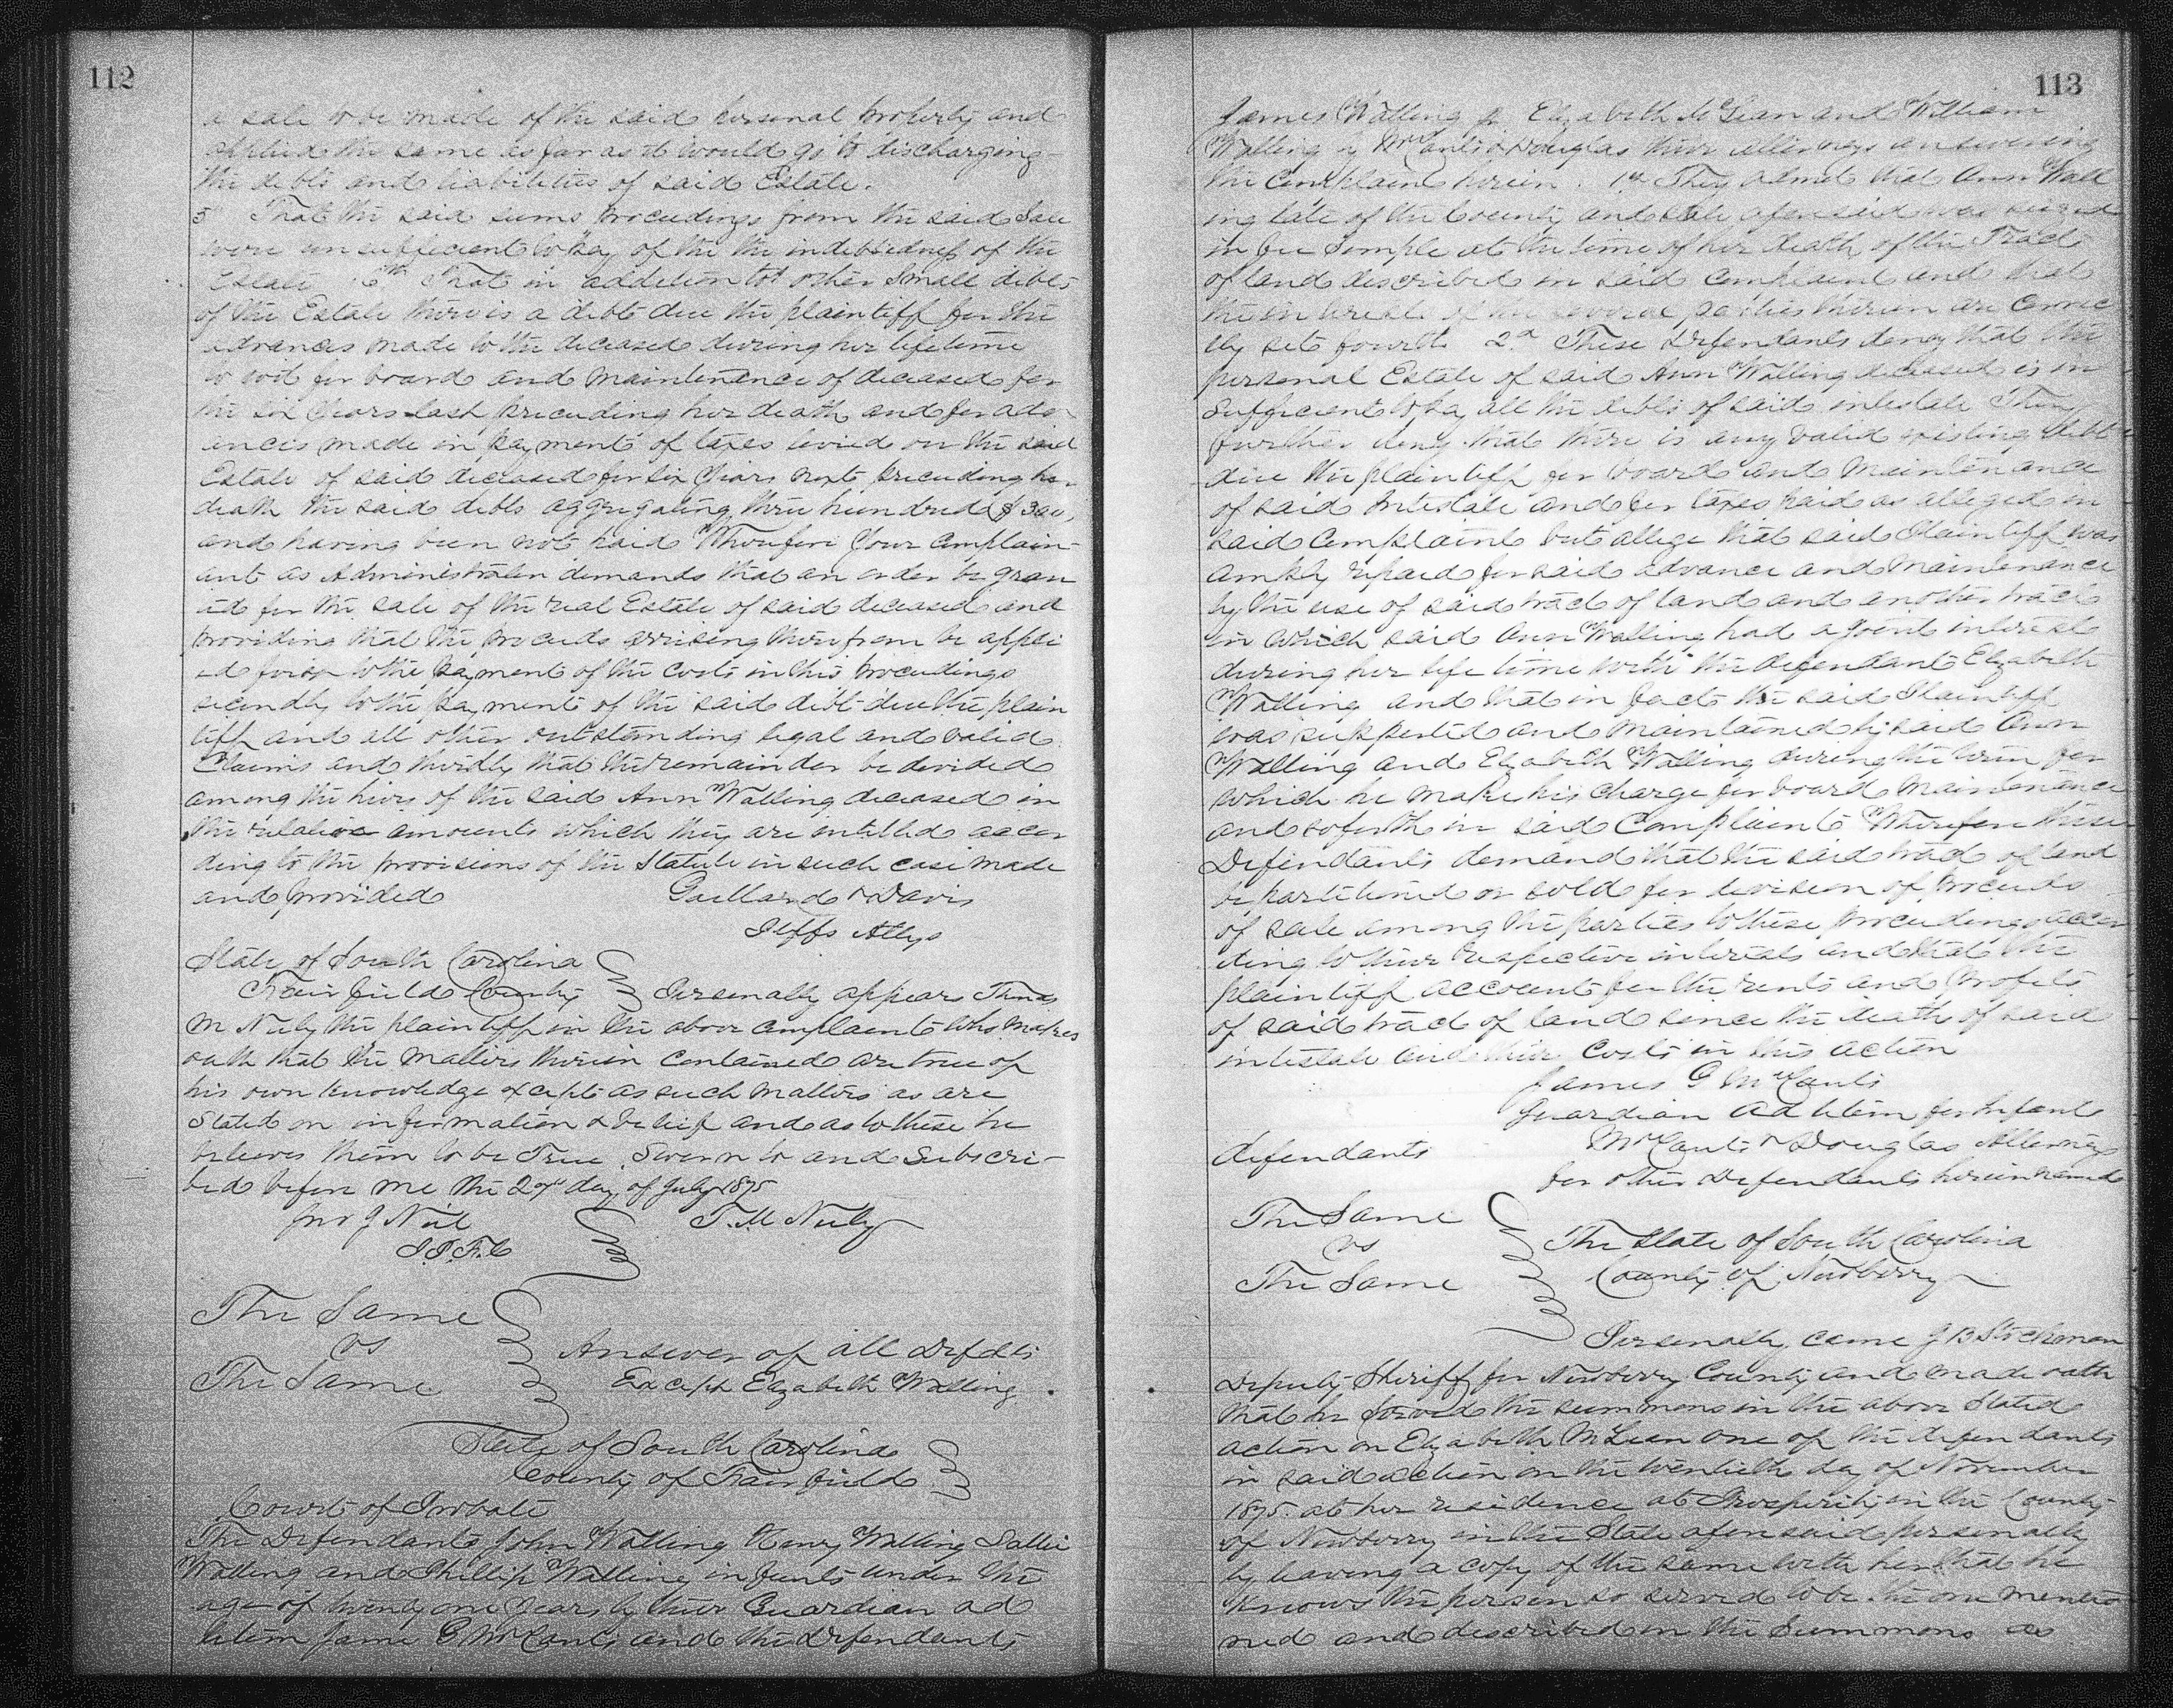 112
a sale to be made of the said personal property and
applied the same as far as it would go to discharging
the debts and liabilities of said Estate.
5 That the said sums proceedings from the said Sale
were unsufficient to pay of the the indebtedness of the
Estate 6th That in addition to other small debts
of the Estate there is a debt due the plaintiff for the
advances made to the deceased during her lifetime
to wit for board and maintenance of deceased for
the six years last preceeding her death and for adv
ances made in payment of taxes levied on the said
Estate of said deceased for six years next preceeding her
death the said debts aggregating three hundred $300,
and having been not paid Wherefore your Complain
ant as Administrator demands that an order be gran
ted for the sale of the real Estate of said deceased and
providing that the proceeds arrising therefrom be appli
ed first to the payment of the costs in this proceedings
secondly to the payment of the said debt due the plain
tiff and all other outstanding legal and valid
Claims and thirdly that the remainder be devided
among the heirs of the said Ann Walling deceased in
the relative amounts which they are intitled accor
ding to the provisions of the Statute in such case made
and provided Gaillard & Davis
Plffs Attys
State of South Carolina
Fairfield County Personally appears Thomas
M Neely the plaintiff in the above complaint who makes
oath that the matters therein contained are true of
his own knowledge except as such matters as are
Stated on information & belief and as to these he
believes them to be True. Sworn to and Subscri-
bed before me the 27th day of July 1875
Jno J Neil T. M Neely
The Same
vs
The Same
Answer of all Defdts
Except Elizabeth Walling.
State of South Carolina
County of Fairfield
Court of Probate
The Defendants John Walling Henry Walling Sallie
Walling and Phillip Walling infants under the
age of twenty one years by their Guardian ad
litem Jame G McCants and the Defendants
113
James Walling Elizabeth McLean and William
Walling by McCants & Douglas their attorneys answering
the Complaint herein. 1st They admit that Ann Wall
ing late of the County and State aforesaid was seized
in fee simple at the time of her death of the Tract
of land described in said Complaint and that
the interests of the several parties therein are Correc
tly sets fourth 2d These Defendants deny that the
personal Estate of said Ann Walling deceased is in
sufficient to pay all the debts of said intestate They
further deny that there is any valid existing debt
due the plaintiff for board and Maintenance
of said Intestate and for taxes paid as alleged in
said Complaint but allege that said Plaintiff was
amply repaid for said advance and Maintenance
by the use of said tract of land and another tract
in which said Ann Walling had a joint interest
during her life time with the defendant Elizabeth
Walling and that in fact the said Plaintiff
was supported and maintained by said Ann
Walling and Elizabeth Walling during the term for
which he make his charge for board Maintenance
and so forth in said Complaint Wherefore these
Defendants demand that the said tract of land
be partitioned or sold for devision of proceeds
of sale among the parties to these proceedings accor
ding to their respective interests and that the
plaintiff account for the rents and profits
of said tract of land since the death of said
intestate and their Costs in this action
James G McCants
Guardian Ad litem for Infant
defendants McCants & Douglas Attorneys
for other Defendants herein named
The Same
vs
The Same
The State of South Carolina
County of Newberry
Personally came J B Stockman
Deputy Sheriff for Newberry County and made oath
that he served the summons in the above Stated
action on Elizabeth McLean one of the defendants
in said action on the twentieth day of November
1875. at her residence at Prosperity in the County
of Newberry in the State aforesaid personally
by leaving a copy of the same with her that he
Knows the person so served to be the one mentio
ned and described in the Summons as